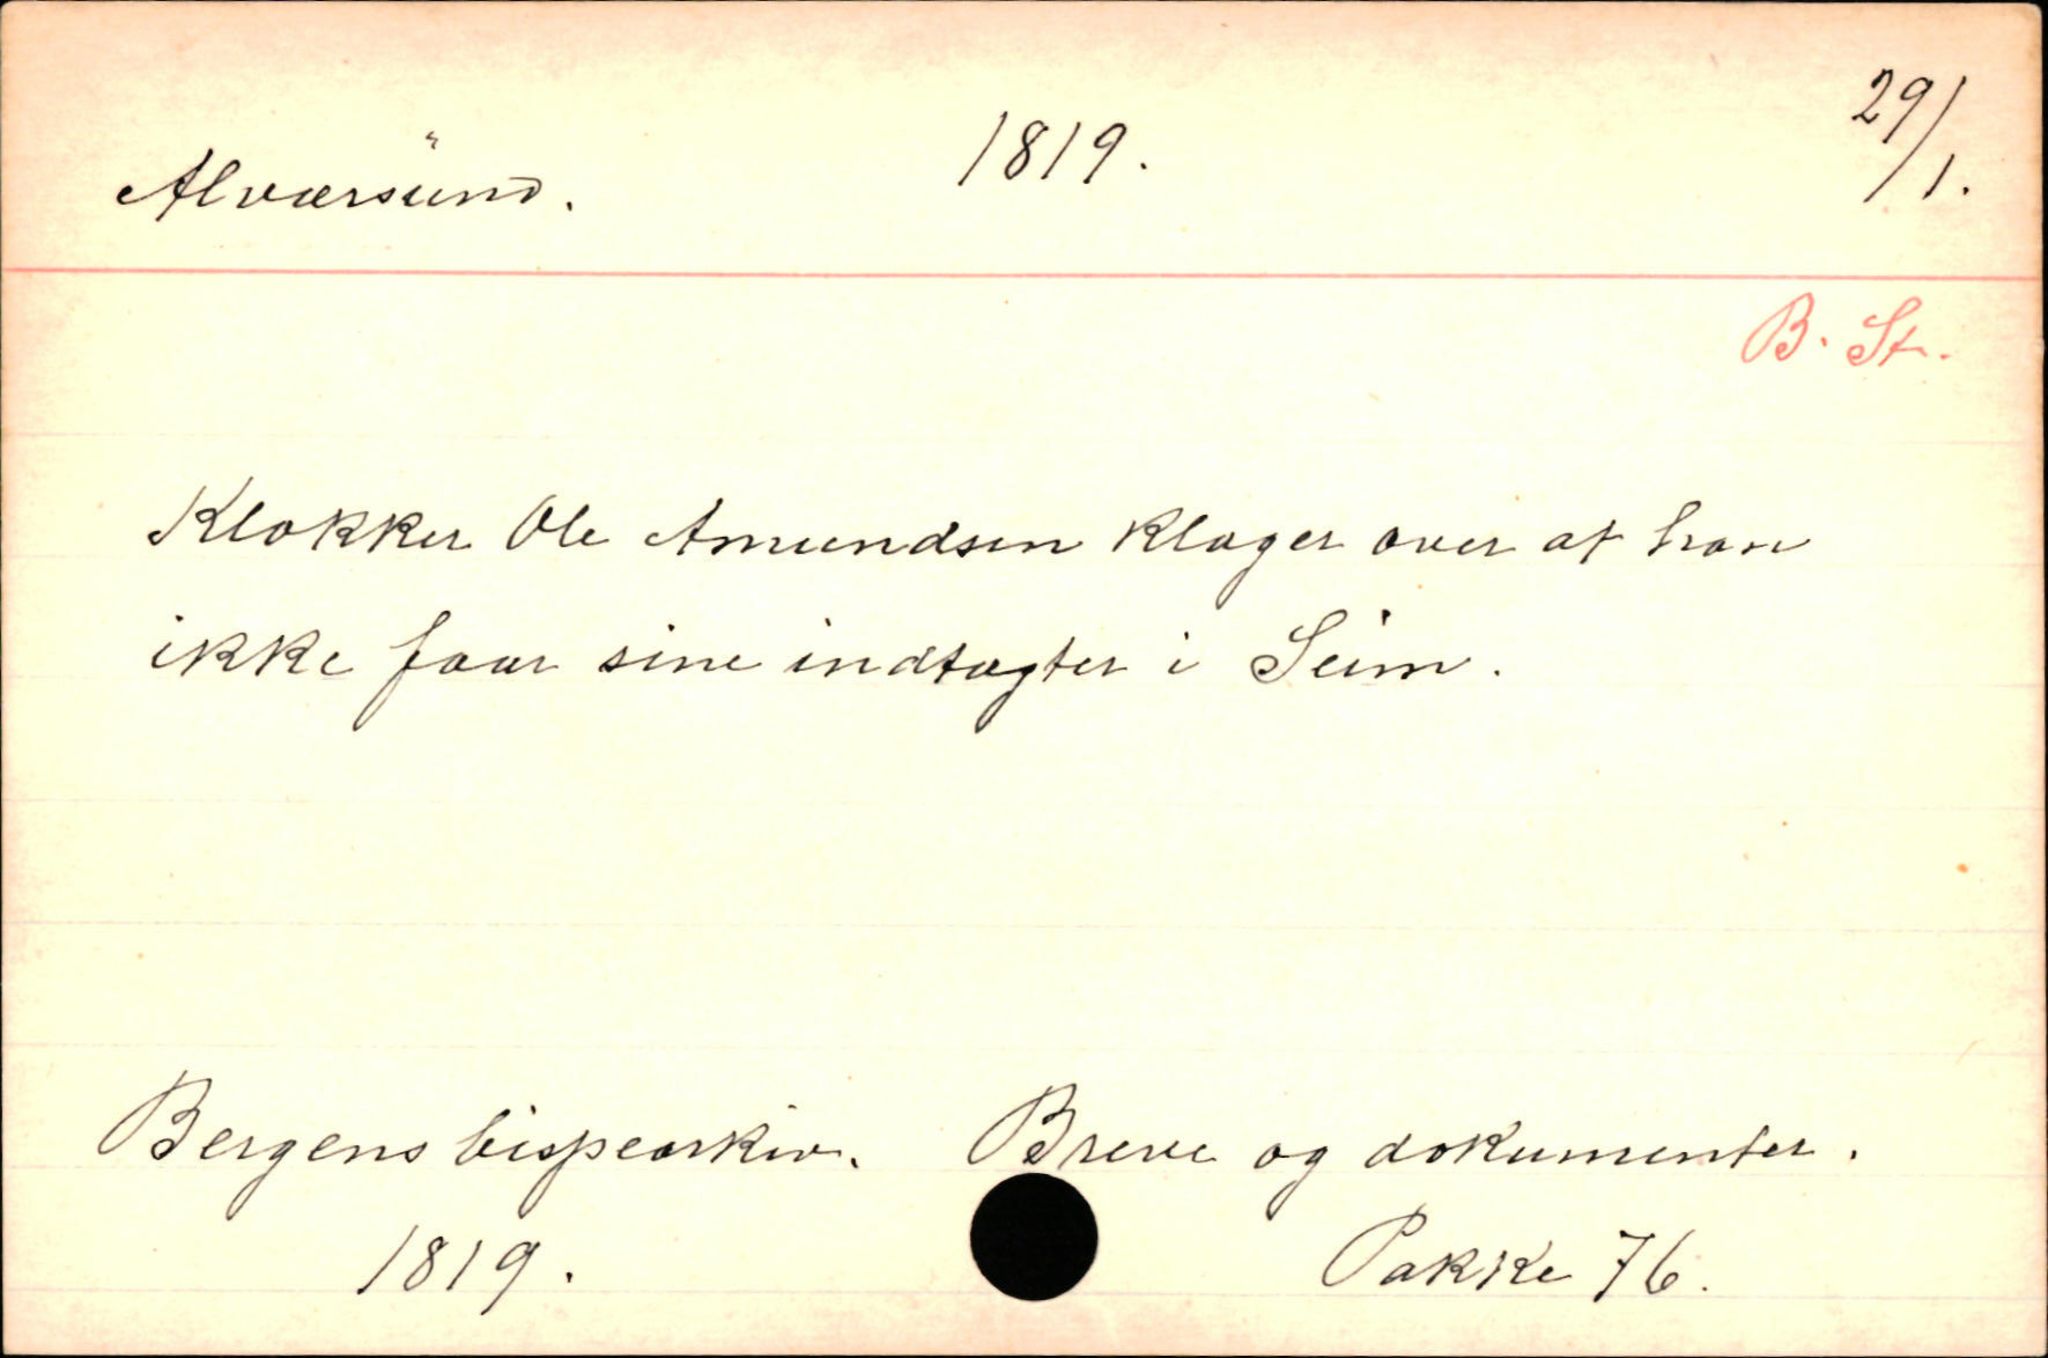 Alværsund. 1819. 29/1.
B. St.
Klokker Ole Amundsen klager over at han
ikke faar sine indtægter i Seim.
Bergens bispearkiv. Breve og dokumenter.
1819. Pakke 76.